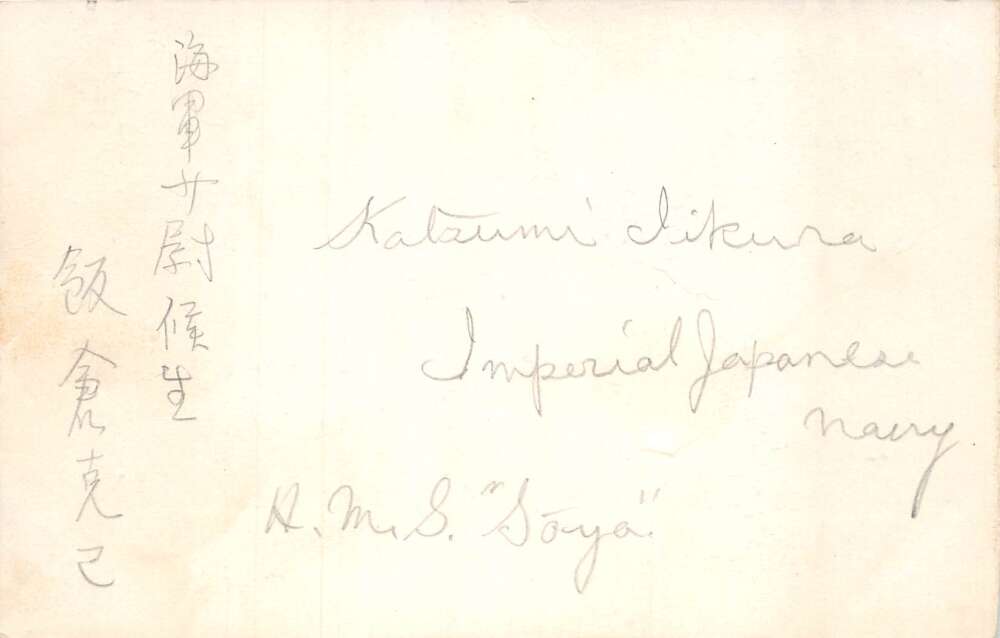 海軍少尉候生
飯倉克己
Katsumi Iikura
Imperial Japanese
Navy.
H.M.S. "Sōya"